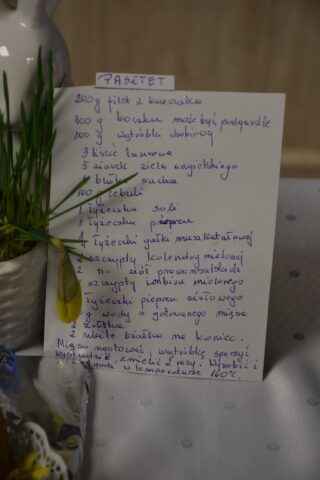 PASZTET
200g filet z kurczaka
800g boczku może być podgardle
100g wątróbki drobiowej
3 liście laurowe
5 ziarek ziela angielskiego
bułka sucha
100g cebuli
1 łyżeczka soli
1 łyżeczka pieprzu
łyżeczki gałki muszkatałowej
2 szczypty kolendry mielonej
2 -"- ziół prowansalskich
szczypty imbiru mielonego
łyżeczki pieprzu ziołowego
g wody z gotowanego mięsa
2 żółtka
2 ubite białka na koniec.
Mięso ugotować, wątróbkę sparzyć
wystudzić, zmielić 2 razy. Wyrobić i
w temperaturze 160°C.